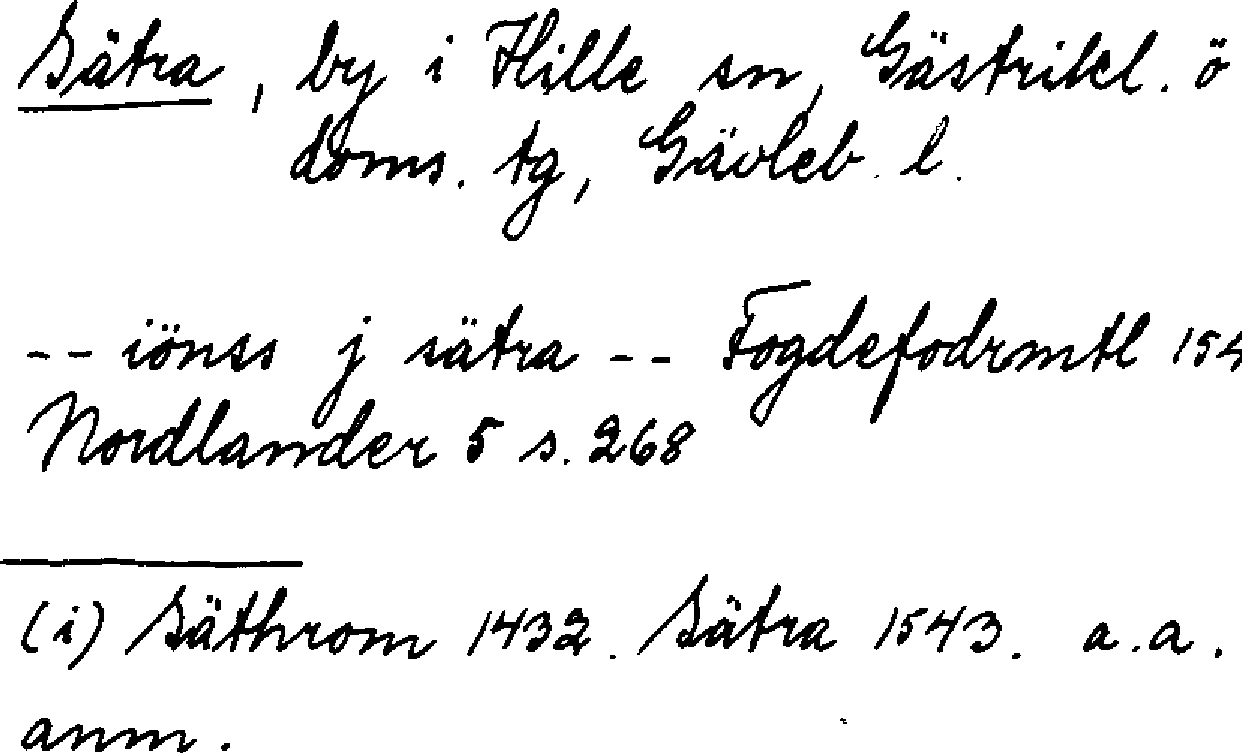 Sätra, by i Hille sn, Gästrikl. ö
doms. tg, Gävleb. l.
-- iönss j sätra -- Fogdefodrmtl
Nordlander 5 s. 268
(i) Säthrom 1432. Sätra 1543. a.a.
anm.